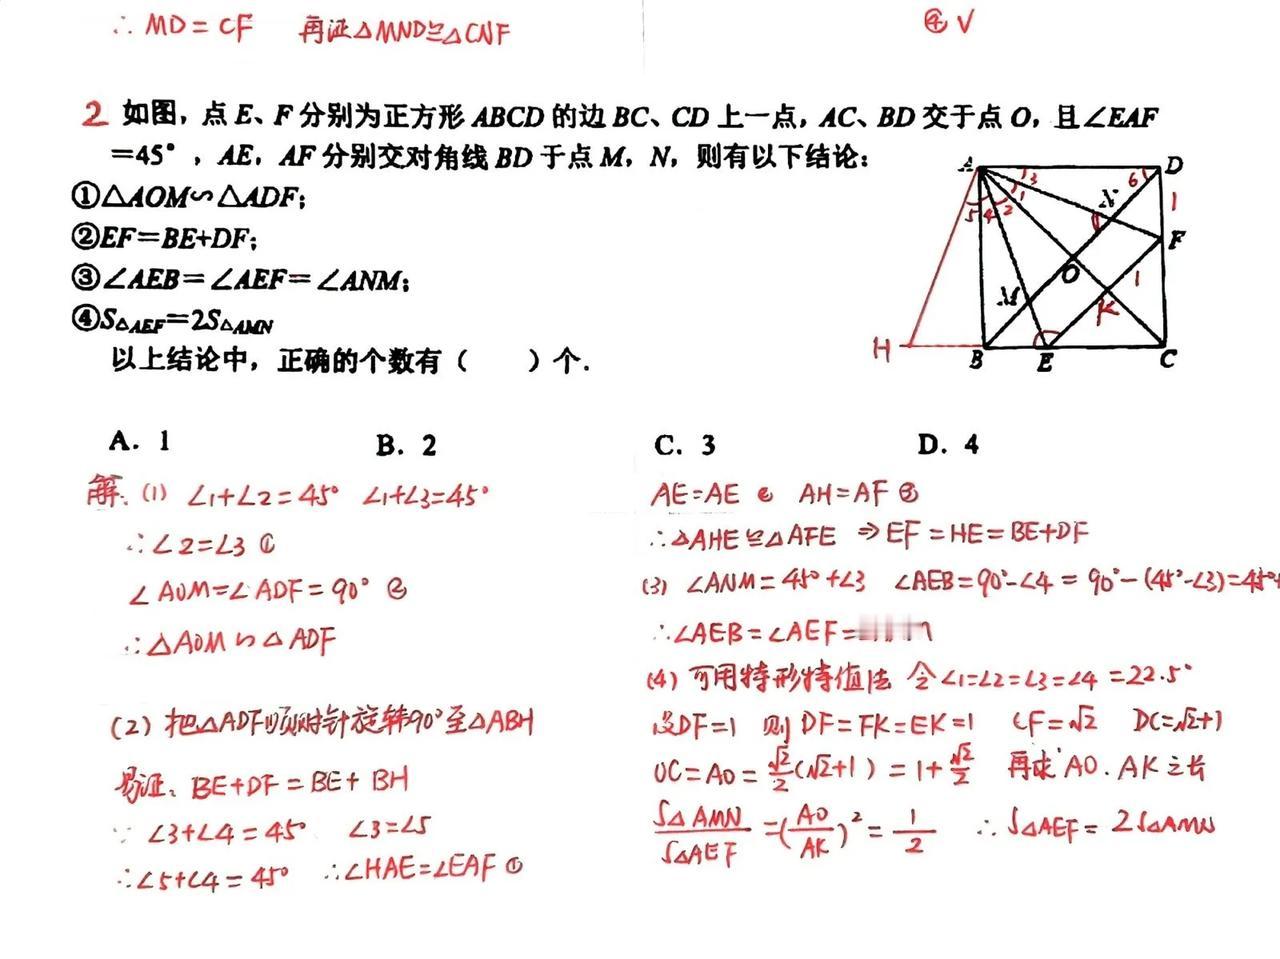 ∴ MD=CF 再证△MND≌△CNF
④ √
2 如图，点E、F分别为正方形ABCD的边BC、CD上一点，AC、BD交于点O，且∠EAF
=45°，AE，AF分别交对角线BD于点M，N，则有以下结论：
①△AOM∽△ADF；
②EF=BE+DF；
③∠AEB=∠AEF=∠ANM；
④S△AEF=2S△AMN
以上结论中，正确的个数有（ ）个．
A D 3 6 1 2 4 5 N 1 F O M 1 K H B E C
A．1 B．2 C．3 D．4
解：(1) ∠1+∠2=45° ∠1+∠3=45°
∴∠2=∠3 ①
∠AOM=∠ADF=90° ②
∴△AOM∽△ADF
(2) 把△ADF顺时针旋转90°至△ABH
易证：BE+DF=BE+BH
∵ ∠3+∠4=45° ∠3=∠5
∴∠5+∠4=45° ∴∠HAE=∠EAF ①
AE=AE ② AH=AF ③
∴△AHE≌△AFE ⇒EF=HE=BE+DF
(3) ∠ANM=45°+∠3 ∠AEB=90°-∠4=90°-(45°-∠3)=45°+
∴∠AEB=∠AEF=
(4) 可用特形特值法 令∠1=∠2=∠3=∠4=22.5°
设DF=1 则DF=FK=EK=1 CF=√2 DC=√2+1
OC=AO=√2/2(√2+1)=1+√2/2 再求AO.AK之长
S△AMN/S△AEF=(AO/AK)²=1/2 ∴S△AEF=2S△AMN